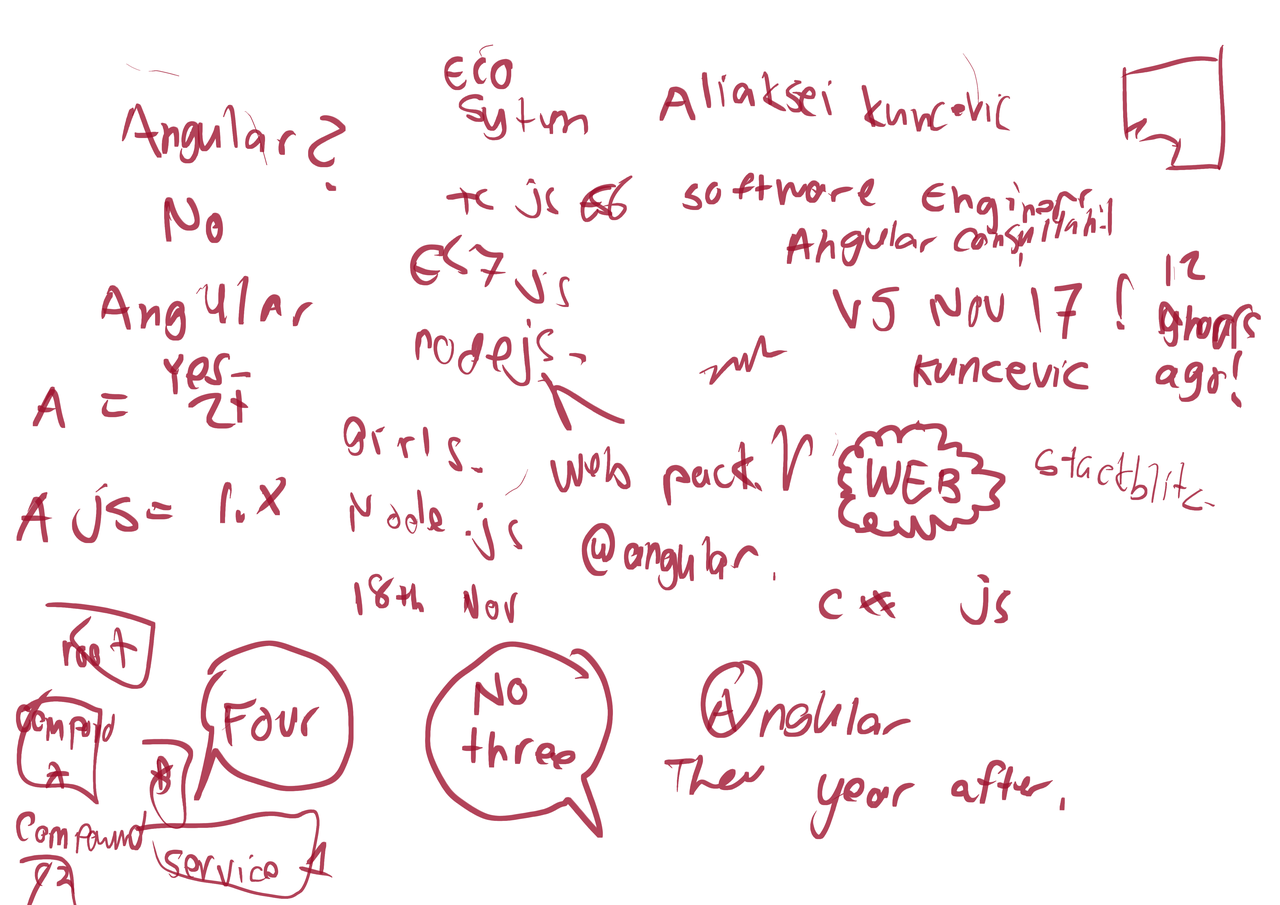 Angular?
No
Angular
Yes-
2+
A =
A js = 1.x
Eco
Sytum
js ES6
ES7 js
nodejs-
girls-
Node.js
18th Nov
Aliaksei Kuncevic
software Engineer
Angular
V5 Nov 17 !
12
groups
ago!
Kuncevic
web pack
WEB
stackblitz-
@angular.
C** js
root
A
B
Compound
Service 1
Four
No
three
Angular
Then year after.